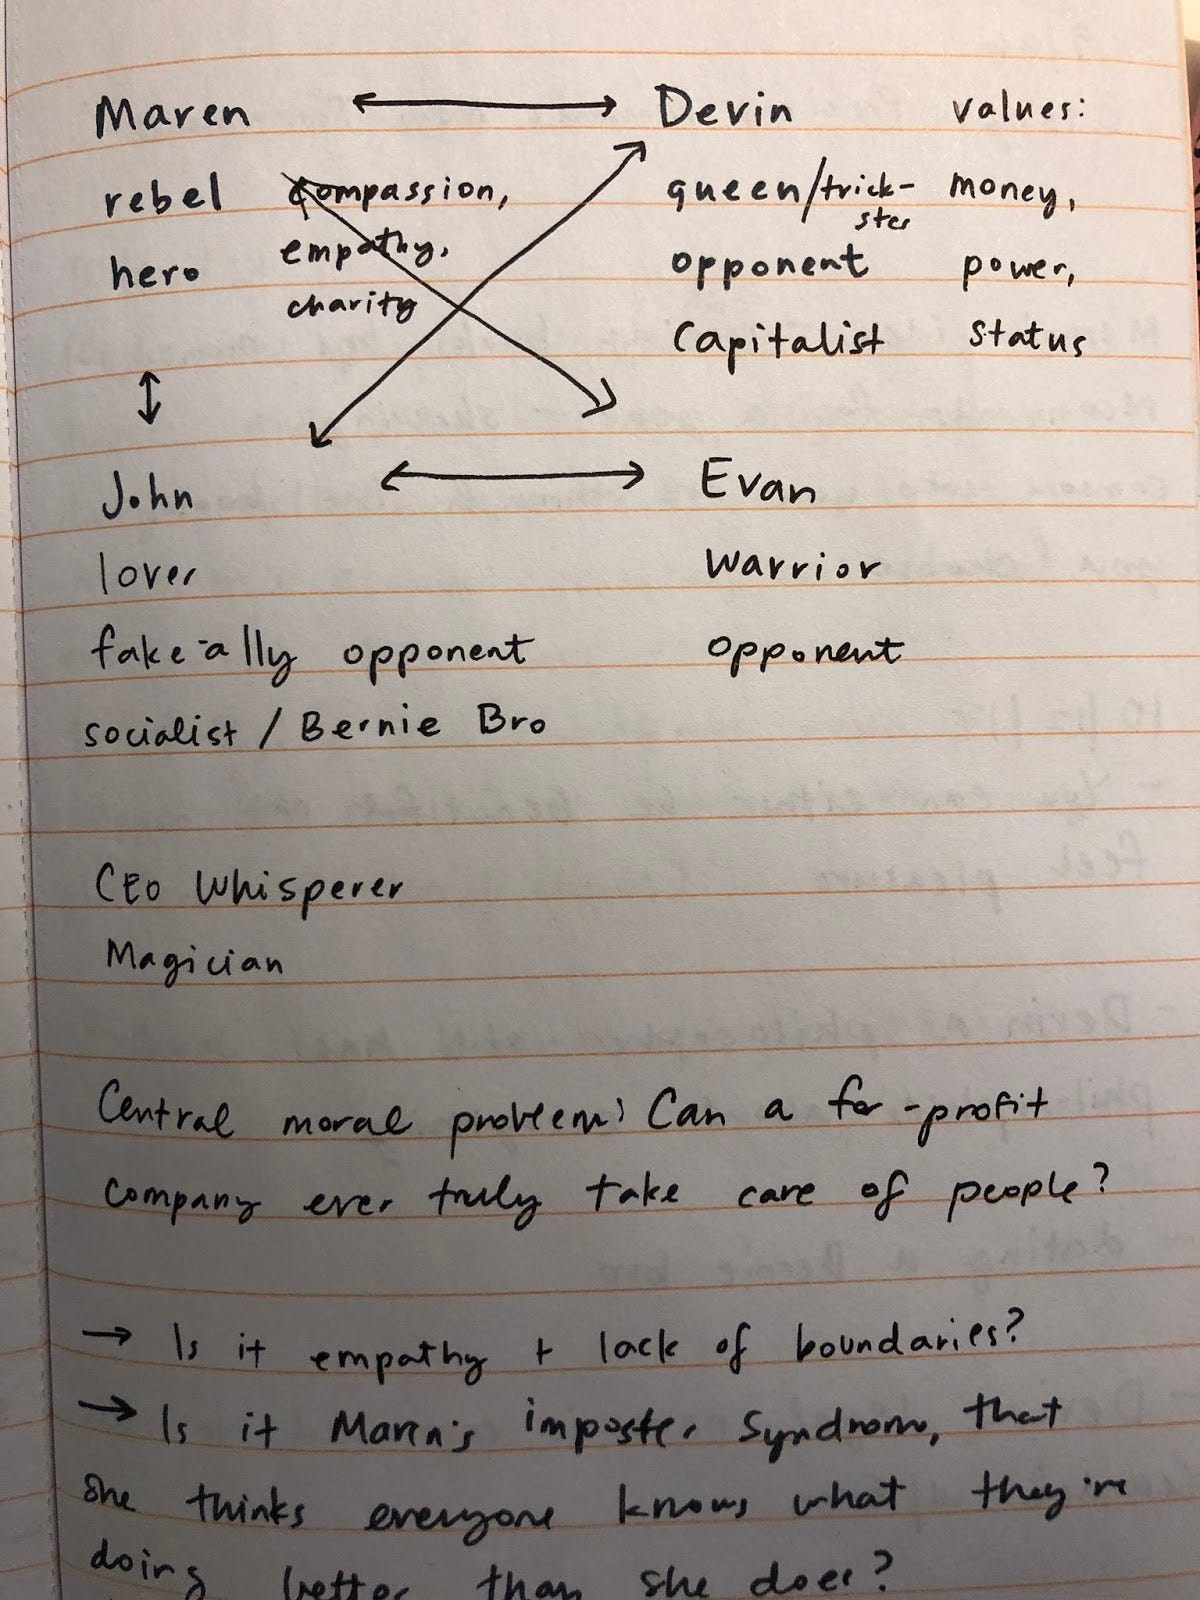 Maren ⟷ Devin values:
rebel compassion, queen/trick- money,
ster
hero empathy, opponent power,
charity capitalist status
John ⟷ Evan
lover warrior
fake-ally opponent opponent
socialist / Bernie Bro
CEO Whisperer
Magician
Central moral problem: Can a for-profit
company ever truly take care of people?
→ Is it empathy + lack of boundaries?
→ Is it Maren's imposter syndrom, that
she thinks everyone knows what they're
doing better than she does?